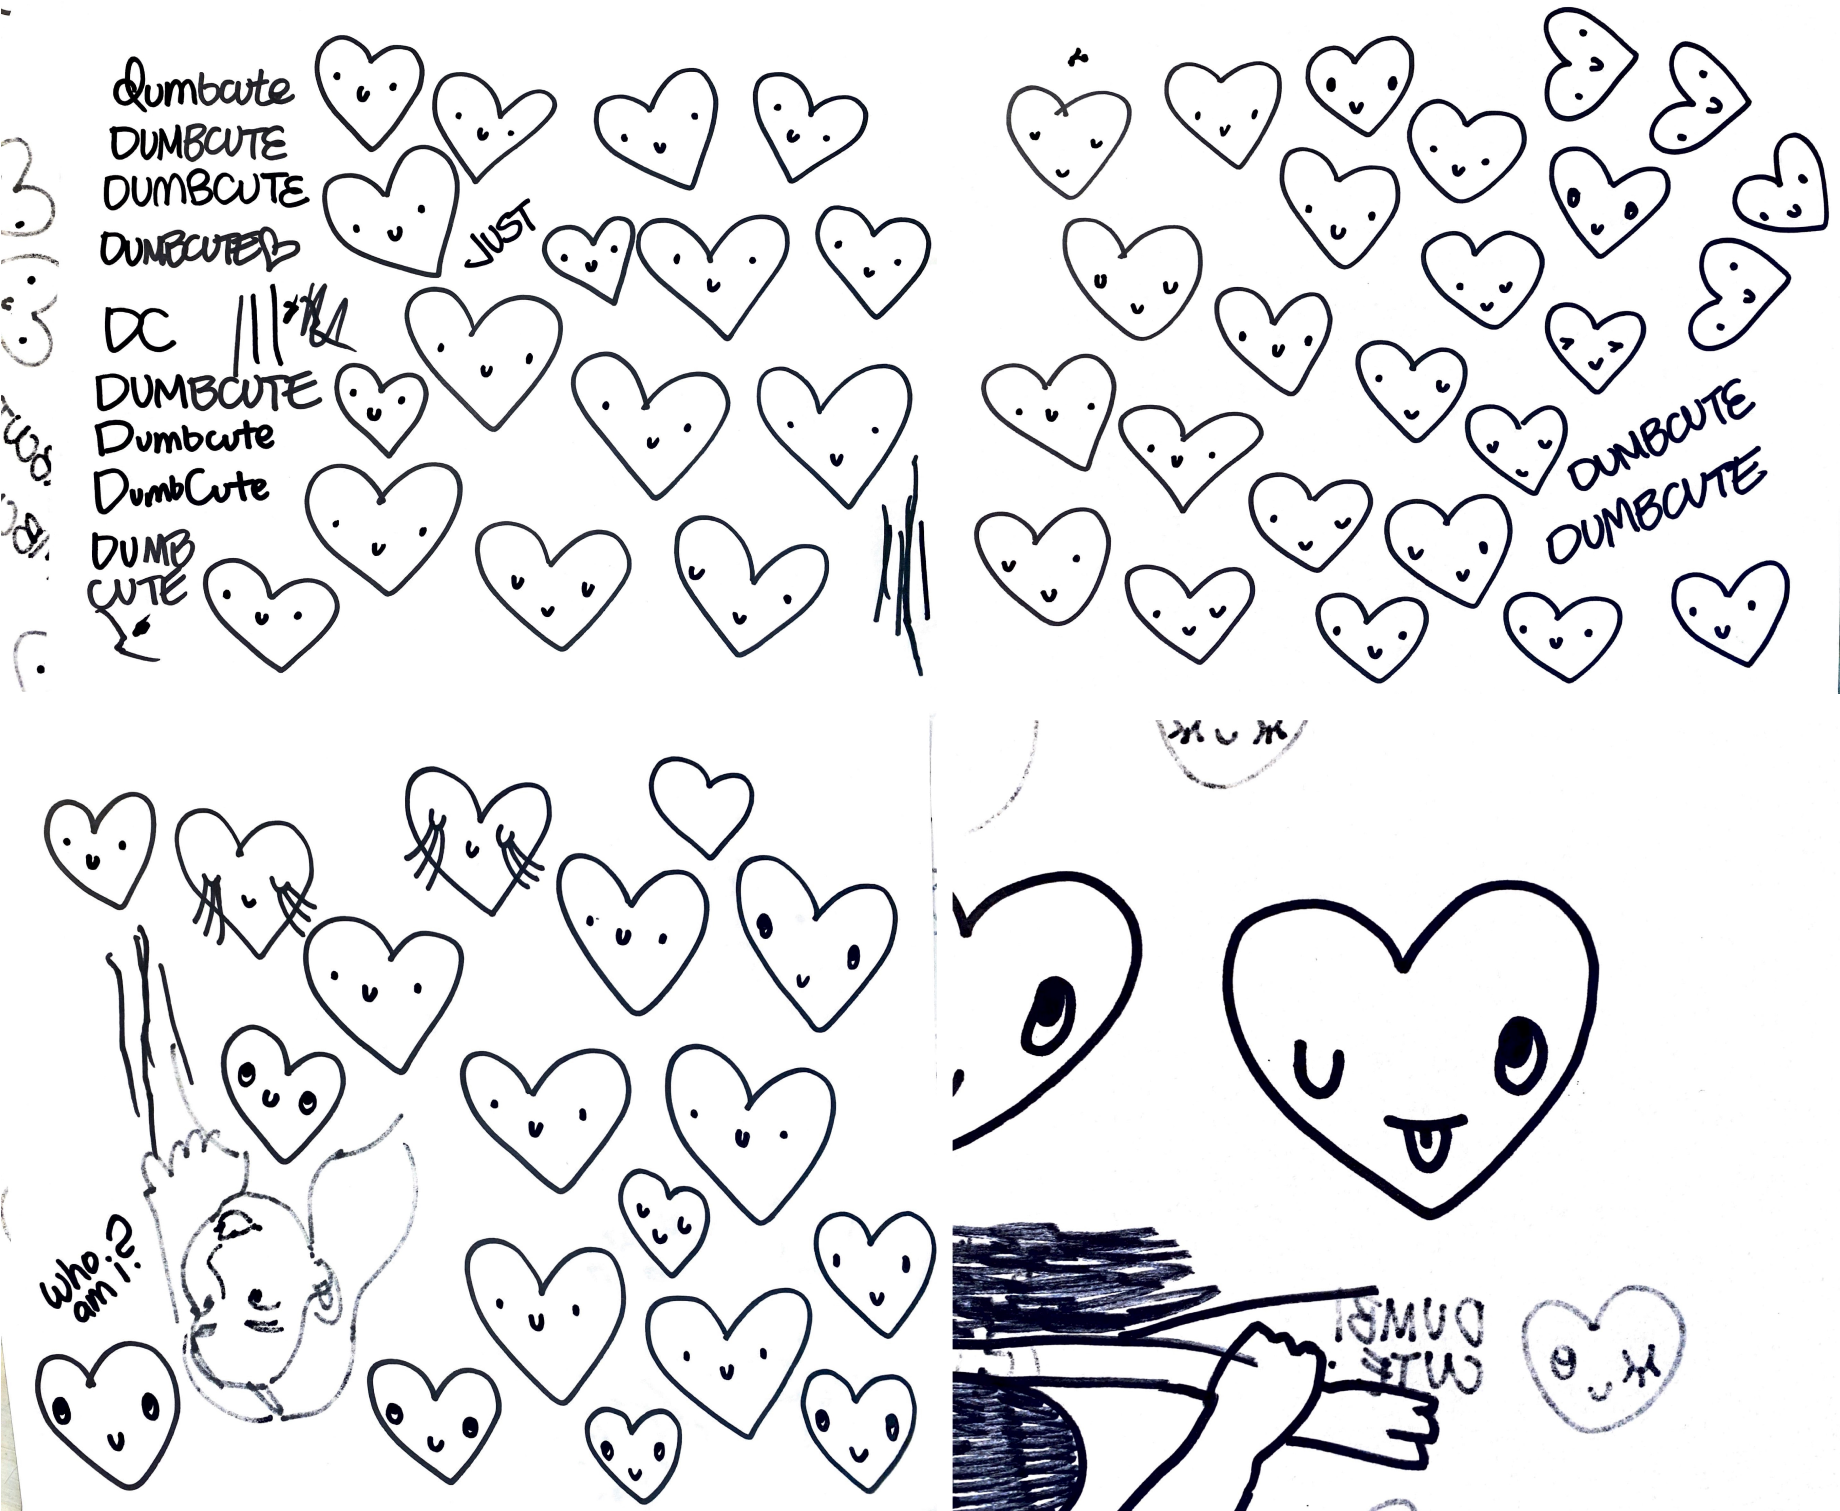 Dumbcute
DUMBCUTE
DUMBCUTE
DUMBCUTE
JUST
DC
DUMBCUTE
Dumbcute
DumbCute
DUMB
CUTE
DUMBCUTE
DUMBCUTE
who
am i?
DUMB
CUTE